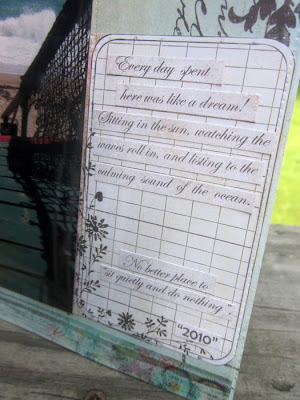 Every day spent
here was like a dream!
Sitting in the sun, watching the
waves roll in, and listing to the
calming sound of the ocean.
No better place to
"sit quietly and do nothing"
"2010"